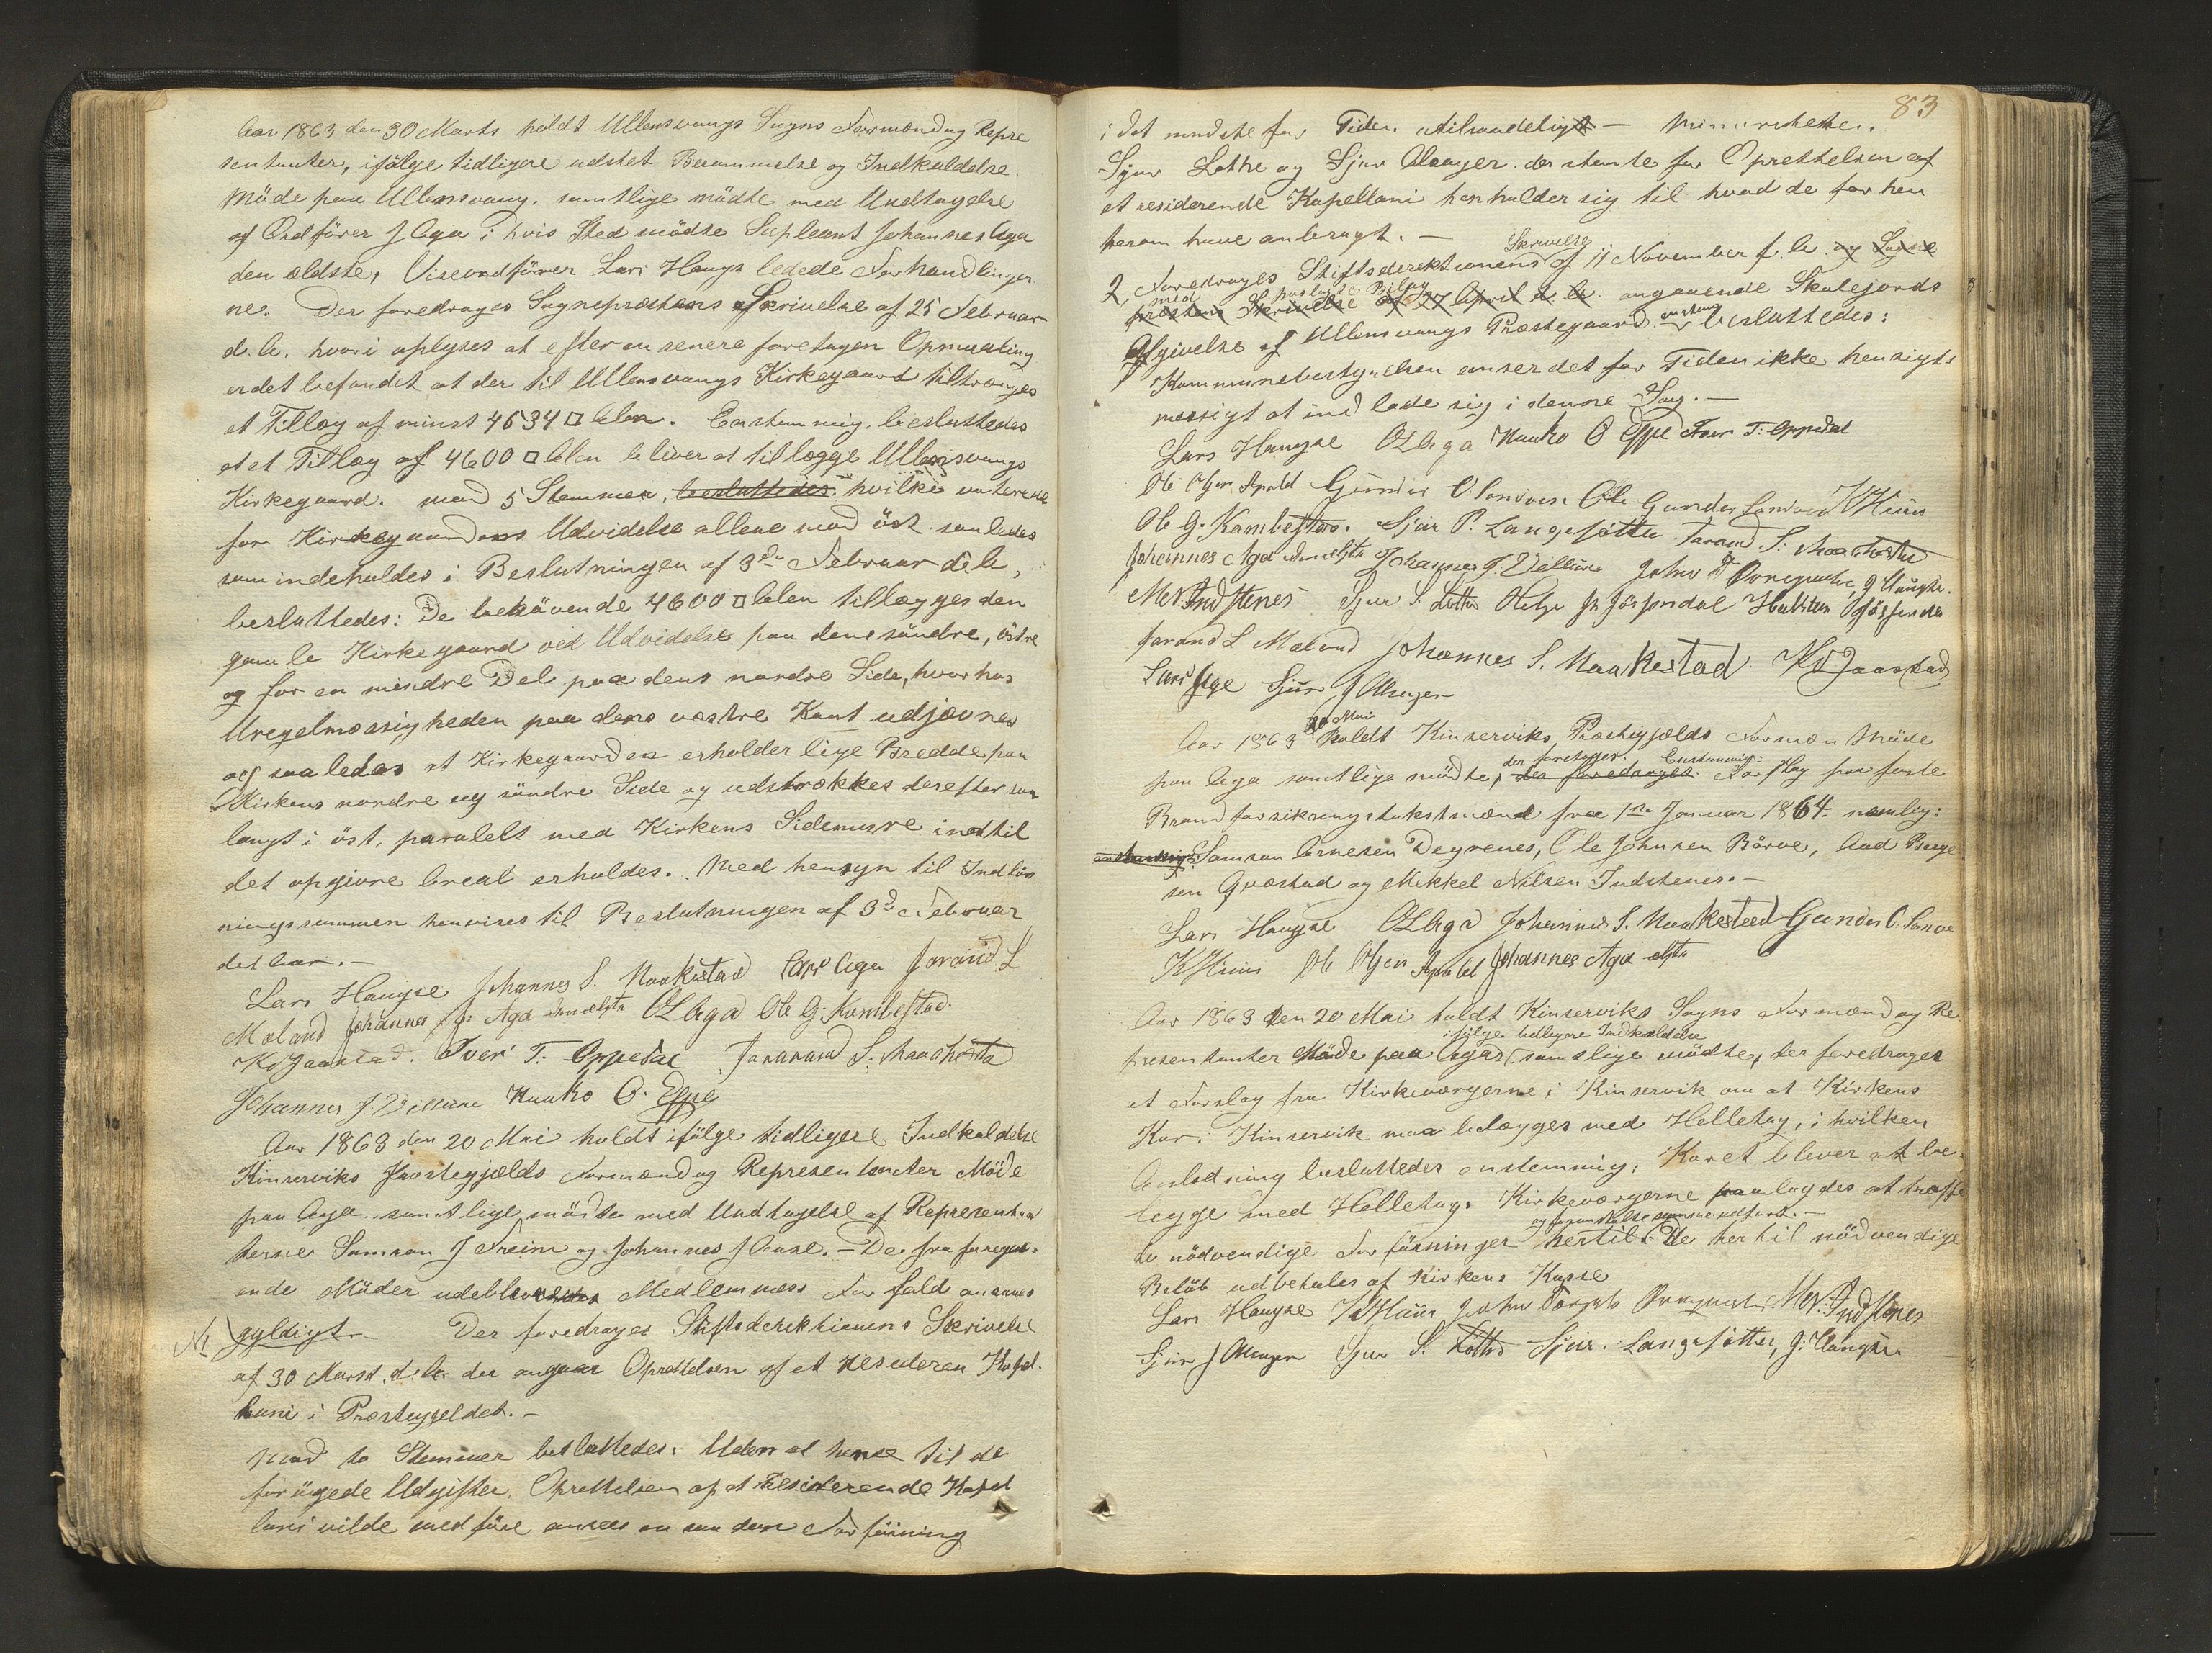 Aar 1863 den 30 Marts holdt Ullensvangs Sogns Formænd og Repre
sentanter, ifölge tidligere udstet Berammelse og Indkaldelse
Möde paa Ullensvang. samtlige mödte med Undtagelse
af Ordförer J Aga i hvis Sted mödte Supleant Johannes Aga
den ældste, Viseordförer Lars Hauge ledede Forhandlinger
ne. Der foredroges Sognepræstens Skrivelse af 25 Februar
d.A. hvori oplyses at efter en senere foretagen Opmaaling
er det befundet at der til Ullensvangs Kirkegaard tiltrænges
et Tillæg af minst 4634 □ Alen. Enstemmig besluttedes
at et Tillæg af 4600 □ Alen bliver at tillægge Ullensvangs
Kirkegaard. mod 5 Stemmer, besluttedes hvilke voterede
for Kirkegaardens Udvidelse allene mod öst saaledes
som indeholdes i Beslutningen af 3de Februar d.A,
besluttedes: De behövende 4600 □ Alen tillægges den
gamle Kirkegaard ved Udvidelse paa dens söndre, östre
og for en mindre Del paa dens nordre Side, hvorhos
Uregelmæssigheden paa dens vestre Kant udjævnes
og saaledes at Kirkegaarden erholder lige Bredde paa
Kirkens nordre og söndre Side og udstrækkes derefter saa
langt i öst, paralelt med Kirkens Sidemure indtil
det opgivne Areal erholdes. Med hensyn til Indlös
ningssummen henvises til Beslutningen af 3de Februar
det Aar. —
Lars Haugse Johannes S. Maakestad Lars Aga Jorand L
Mæland Johannes J: Aga den ælste OLAga Ole G. Kambestad
KJaastad. Iver T: Oppedal Jararand S. Maakesta
Johannes J. Villure Hauko O. Eppe
Aar 1863 den 20 Mai holdt ifölge tidligere Indkaldelse
Kinserviks Præstegjælds Formænd og Representanter Möde
paa Aga. samtlige mödte med Undtagelse af Representan
terne Samson J Freim og Johannes J Aase. — De fra foregaa-
ende Möder udeblevne Medlemmers Forfald ansaaes
gyldigt — Der foredroges Stiftsderektionens Skrivelse
af 30 Marts d:A. der angaar Oprettelsen af et residerende Kapel
lani i Præstegjeldet. —
mod to Stemmer besluttedes: Uden at hense til de
forögede Udgifter Oprettelsen af et Residerende Kapel
lani vilde medföre ansees en saadan Forföining
83
i det mindste for Tiden utilraadeligt — Minoriteten.
Sjur Lothe og Sjur Alsager der stemte for Oprettelsen af
et residerende Kapellani henholder sig til hvad de forhen
herom have anbragt. —
Skrivelse
2, Foredroges Stiftsderektionens af 11 November f.A. og Sogne
med Bilag
præstens Skrivelse af 27 April d.A. angaaende Skolejords
Afgivelse af Ullensvangs Præstegaard besluttedes:
Kommunebestyrelsen anser det for Tiden ikke hensigts
mæssigt at indlade sig i denne Sag. —
Lars Haugse OLAga Hauko O Eppe Iver T: Oppedal
Ole Olsen Apold Gunder O. Sandven Ole Gunder Sandven KHuus
Ole G. Kambestad. Sjur P. Langesötter Jarand S: Maakesta
Johannes Aga den ælste Johannes J. Villure John
M N Indstenes Sjur S. Lothe Helje Jösendal Halsten
Jorand L Mæland Johannes S. Maakestad. KJaastad
Lars Aga Sjur J Alsager
20 Mai
Aar 1863 holdt Kinserviks Præstegjælds Formæn Möde
der foretoges: Enstemmig:
paa Aga samtlige mödte, der foredroges: Forslag paa faste
Brandforsikringstakstmænd fra 1ste Januar 1864. nemlig:
Samson Arnesen Degrenes, Ole Johnsen Börve, Aad Baage
sen Qvæstad og Mikkel Nilsen Indstenes. —
Lars Haugse OLAga Johannes S. Maakestad Gunder O. Sandve
KHuus Ole Olsen Apold Johannes Aga ælste
Aar 1863 den 20 Mai holdt Kinserviks Sogns Formænd og Re
ifölge tidligere Indkaldelse
presentanter Möde paa Aga samtlige mödte, der foredroges
et Forslag fra Kirkeværgerne i Kinservik om at Kirkens
Kor i Kinservik maa belægges med Helletag, i hvilken
Anledning besluttedes enstemmig: Koret bliver at be
lægge med Helletag. Kirkeværgerne paalagdes at træffe
de nödvendige Forföininger hertil. De hertil nödvendige
Belöb udbetales af Kirkens Kasse
Lars Haugse KHuus John M N. Indstenes
Sjur J Alsager Sjur S. Lothe Sjur Langesötter,